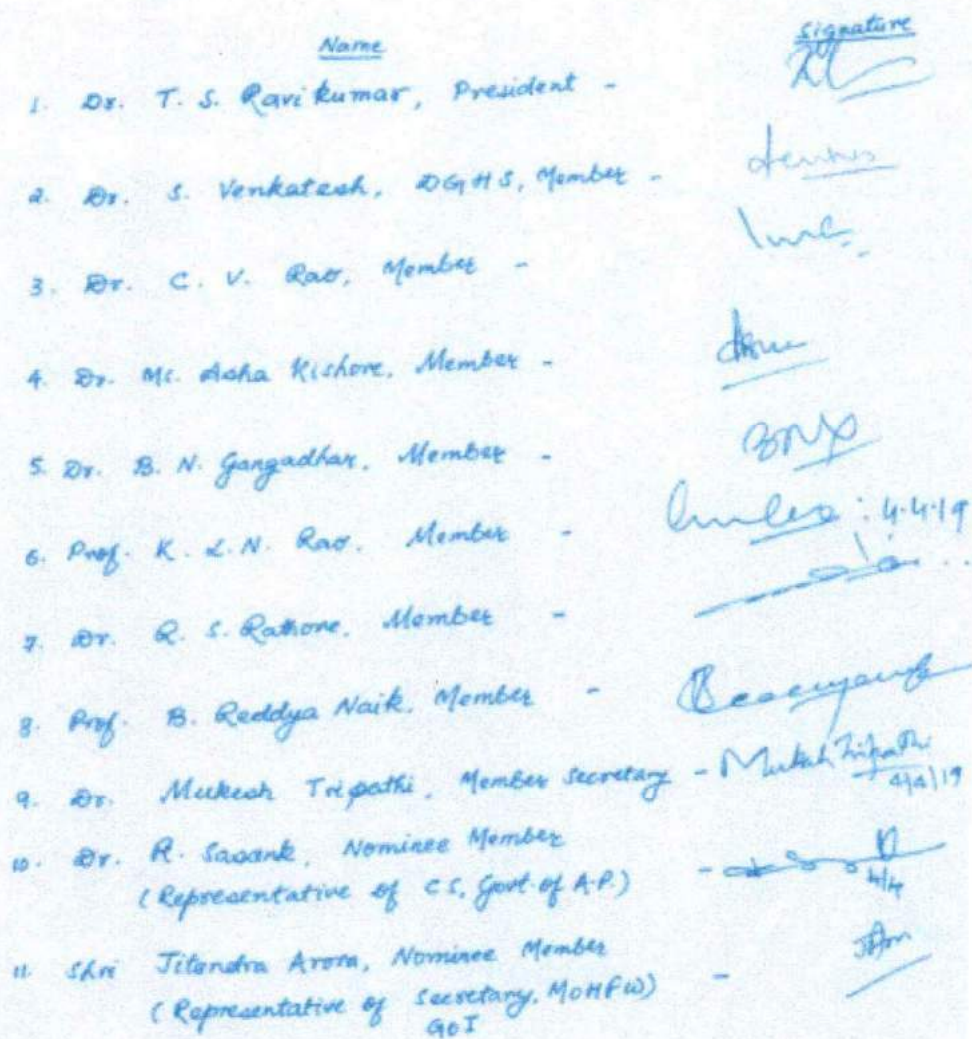 Name Signature
1. Dr. T. S. Ravi kumar, President -
2. Dr. S. Venkatesh, DGHS, Member -
3. Dr. C. V. Rao, Member -
4. Dr. Ms. Asha Kishore, Member -
5. Dr. B. N. Gangadhar, Member -
6. Prof. K. L. N. Rao, Member - : 4.4.19
7. Dr. R. S. Rathore, Member -
8. Prof. B. Reddya Naik, Member -
9. Dr. Mukesh Tripathi, Member Secretary - Mukesh Tripathi
4/4/19
10. Dr. R. Sasank, Nominee Member
(Representative of CS, Govt. of A.P.) -
4/4
11. Shri Jitendra Arora, Nominee Member
(Representative of Secretary, MOHFW) -
GOI